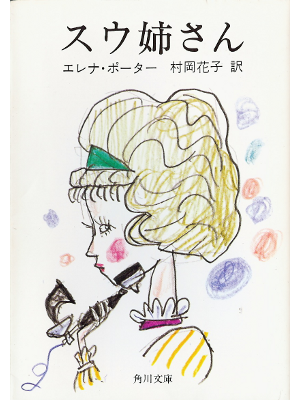 スウ姉さん
エレナ・ポーター 村岡花子 訳
角川文庫